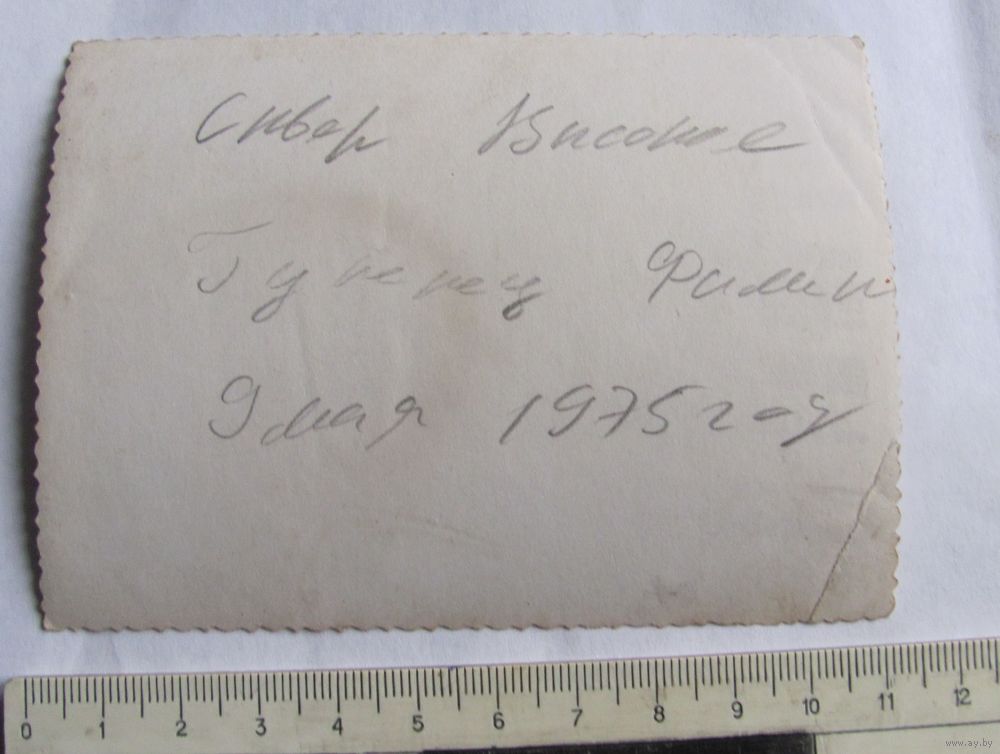 Сквер Высокое
Филип
9 мая 1975 году
0 1 2 3 4 5 6 7 8 9 10 11 12
www.ay.by